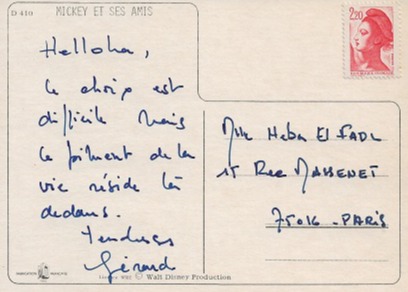 D 410 MICKEY ET SES AMIS
2,20
Helloha,
Le choix est
difficile mais
le piment de la
vie réside là
dedans.
Tendresses
Gérard
Mlle Heba El FADL
15 Rue MASSENET
75016 - PARIS
Walt Disney Production